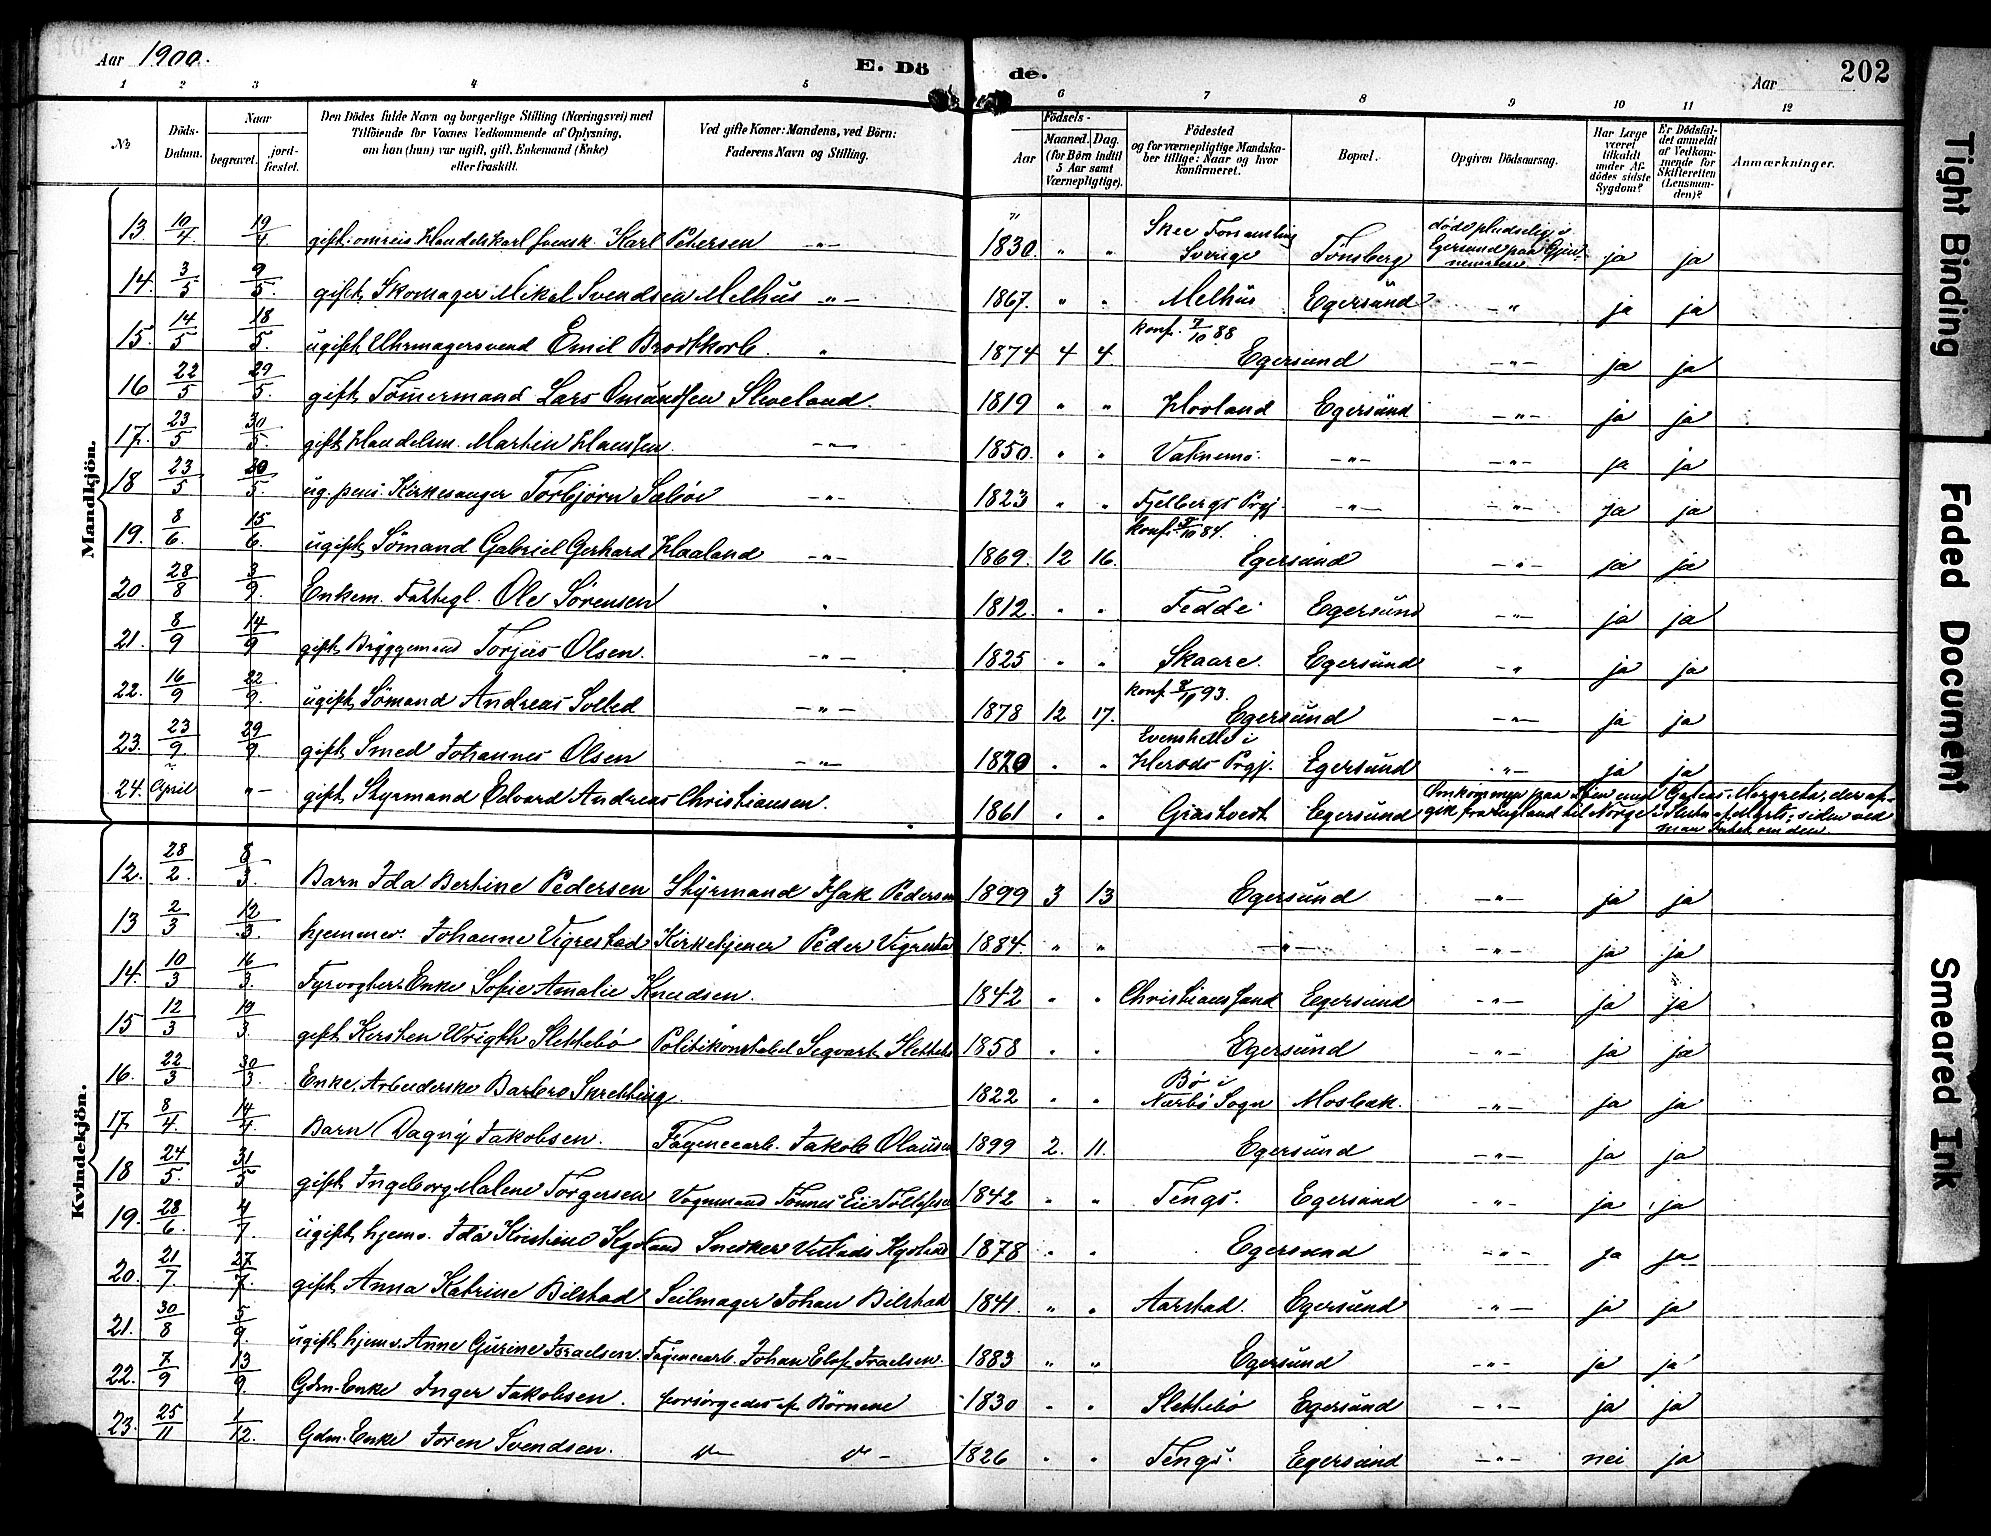 Aar 1900. E. Dö de. Aar 202
1 2 3 4 5 6 7 8 9 10 11 12
No
Döds-Datum.
Naar begravet. jordfæstet.
Den Dödes fulde Navn og borgerlige Stilling (Næringsvei) med Tilföiende for Voxnes Vedkommende af Oplysning, om han (hun) var ugift, gift, Enkemand (Enke) eller fraskilt.
Ved gifte Koner: Mandens, ved Börn: Faderens Navn og Stilling.
Födsels-
Aar Maaned. Dag. (for Börn indtil 5 Aar samt Værnepligtige).
Födested og for værnepligtige Mandskaber tillige: Naar og hvor konfirmeret.
Bopæl.
Opgiven Dödsaarsag.
Har Læge været tilkaldt under Afdödes sidste Sygdom?
Er Dödsfaldet anmeldt af Vedkommende for Skifteretten (Lensmanden)?
Anmærkninger.
Mandkjön.
13. 10/4 19/4 gift. omreis. Handelskarl svensk. Karl Petersen -"- 1830. " " Skee Sverige Tönsberg döde pludselig i Egersund paa ja ja
14. 3/5 9/5. gift, Skomager Mikal Svendsen Melhus -"- 1867. " " Melhus Egersund -"- ja ja
15. 14/5 18/5. ugift, Uhrmagersvend Emil Brodtkorb. " 1874 4 4. konf. 7/10 88 Egersund -"- ja ja
16 22/5 29/5. gift, Tömermand Lars Omundsen Sleveland. 1819 " " Hovland Egersund -"- ja ja
17. 23/5 30/5. gift, Handelsm. Martin Hansen. -"- 1850. " " Vatnemo. -"- -"- ja ja
18 23/5 30/5. ug. pens. Kirkesanger Torbjörn Saböe -"- 1823 " " Fjelbergs Prgj. -"- -"- ja ja
19. 8/6. 15/6. ugift, Sömand Gabriel Gerhard Haaland -"- 1869. 12 16. konf. 5/10 84. Egersund -"- ja ja
20 28/8 3/9. Enkem. Fattigl. Ole Sörensen " 1812. " " Fedde Egersund -"- ja ja
21. 8/9 14/9 gift, Bryggemand Torjus Olsen. -"- 1825 " " Skaare. Egersund -"- ja ja
22. 16/9 22/9. ugift, Sömand Andreas Solled -"- 1878 12 17. konf. 93. Egersund -"- ja ja
23. 23/9 29/9. gift, Smed Johannes Olsen -"- 1820 " " i Herods Prgj. Egersund -"- ja ja
24. April -"- gift, Styrmand Edvard Andreas Christiansen. 1861 " " Græstvedt Egersund Omkommen paa Margreta, der afgik fra England til Norge i Slutn. af Marts; siden ved man Intet om den
Kvindekjön.
12. 28/2. 8/3. Barn Ida Bertine Pedersen Styrmand Isak Pedersen 1899 3 13 Egersund -"- ja ja
13 2/3 12/3. hjemmev. Johanne Vigrestad Kirketjener Peder Vigrestad 1884. " " -"- -"- ja ja
14. 10/3 16/3. Enke Sofie Amalie Knudsen. 1842 " " Christianssand Egersund -"- ja ja
15 12/3 19/3. gift Kirsten Wrigth Slettebö Politikonstabel Segvart Slettebö 1858 " " Egersund -"- ja ja
16. 22/3 30/3. Enke, Arbeiderske Barbro Skretting. 1822 " " Bö i Nærbö Sogn Mosbæk. -"- ja ja
17. 8/4 14/4 Barn Dagny Jakobsen. Fayencearb. Jakob Olausen 1899 2. 11. Egersund -"- ja ja
18 24/5. 31/5 gift, Ingeborg Malene Torgersen Vognmand Tönnes Eie Tollefsen 1842 " " Tengs. Egersund -"- ja ja
19. 28/6. 4/7 ugift, hjemv. Ida Kristine Kydland Snedker Kydland 1878 " " Egersund -"- ja ja
20. 21/7. 27/7. gift, Anna Katrine Bilstad Seilmager Johan Bilstad 1841. " " Aarstad. Egersund -"- ja ja
21. 30/8 5/9. ugift hjemv. Anne Gurine Israelsen. Fayencearb. Johan Elof Israelsen. 1883 " " Egersund -"- ja ja
22. 7/9 13/9. Gdm.-Enke Inger Jakobsen. forsörgedes af Börnene 1830 " " Slettebö Egersund -"- ja ja
23. 25/11 1/12. Gdm.-Enke Joren Svendsen. 1826 " " Tengs. Egersund -"- nei ja
Tight Binding
Faded Document
Smeared Ink